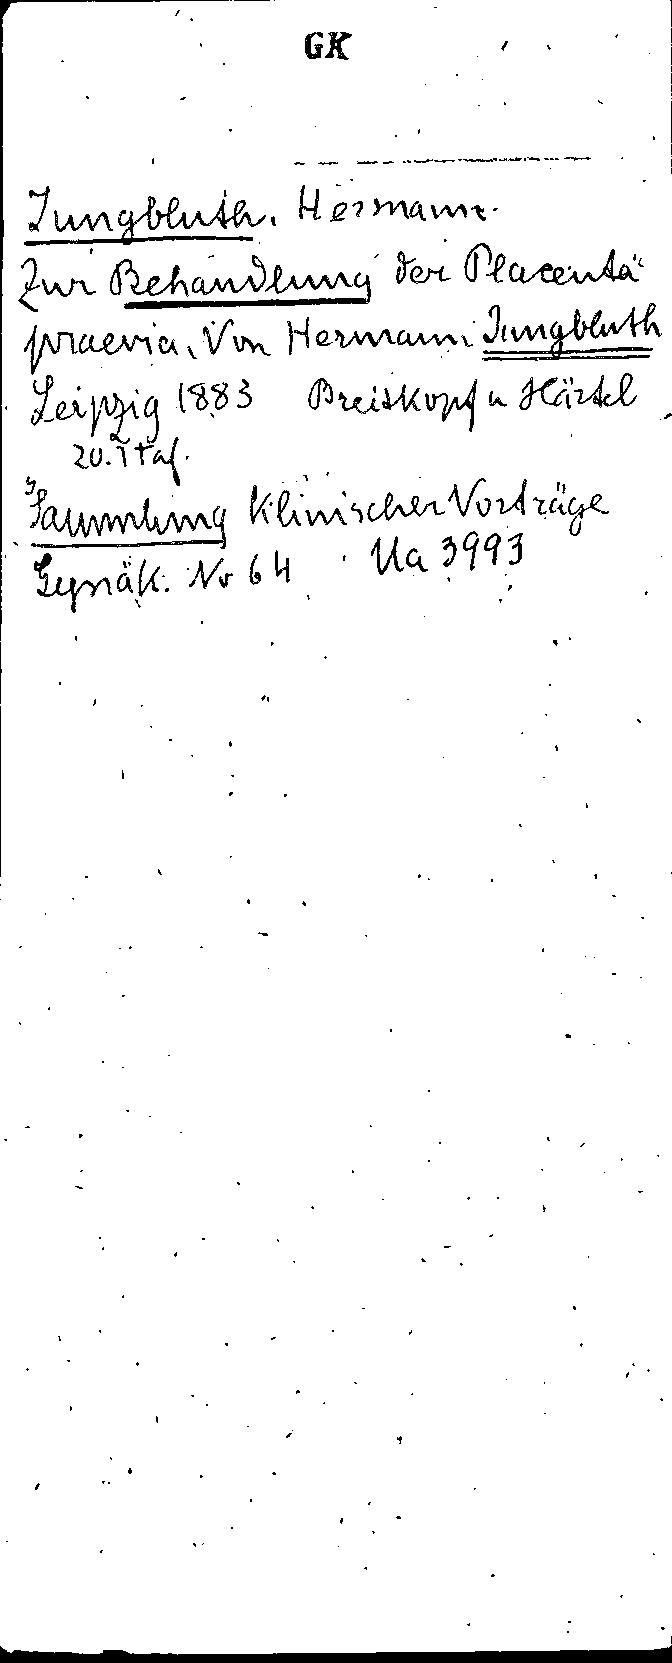 GK
Jungbluth, Hermann.
Zur Behandlung der Placenta
praevia. Von Hermann Jungbluth
Leipzig 1883 Breitkopf u Härtel
20. 1 Taf.
Sammlung Klinischer Vorträge
Gynäk. Nr 64 Ua 3993